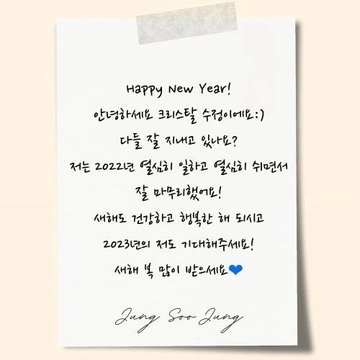 Happy New Year!
안녕하세요 크리스탈 수정이에요:)
다들 잘 지내고 있나요?
저는 2022년 열심히 일하고 열심히 쉬면서
잘 마무리했어요!
새해도 건강하고 행복한 해 되시고
2023년의 저도 기대해주세요!
새해 복 많이 받으세요💙
Jung Soo Jung